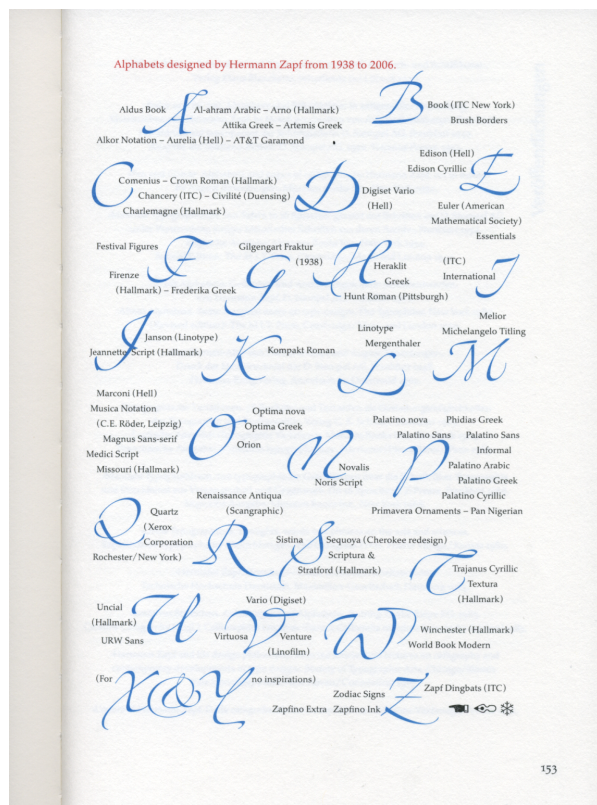 Alphabets designed by Hermann Zapf from 1938 to 2006.
A
Aldus Book Al-ahram Arabic – Arno (Hallmark)
Attika Greek – Artemis Greek
Alkor Notation – Aurelia (Hell) – AT&T Garamond
B
Book (ITC New York)
Brush Borders
C
Comenius – Crown Roman (Hallmark)
Chancery (ITC) – Civilité (Duensing)
Charlemagne (Hallmark)
D
Digiset Vario
(Hell)
Edison (Hell)
Edison Cyrillic
E
Euler (American
Mathematical Society)
Essentials
Festival Figures
F
Firenze
(Hallmark) – Frederika Greek
Gilgengart Fraktur
(1938)
G
H
Heraklit
Greek
Hunt Roman (Pittsburgh)
(ITC)
International
I
J
Janson (Linotype)
Jeannette Script (Hallmark)
K
Kompakt Roman
Linotype
Mergenthaler
L
Melior
Michelangelo Titling
M
Marconi (Hell)
Musica Notation
(C.E. Röder, Leipzig)
Magnus Sans-serif
Medici Script
Missouri (Hallmark)
O
Optima nova
Optima Greek
Orion
N
Novalis
Noris Script
Palatino nova Phidias Greek
Palatino Sans Palatino Sans
Informal
P
Palatino Arabic
Palatino Greek
Palatino Cyrillic
Primavera Ornaments – Pan Nigerian
Q
Quartz
(Xerox
Corporation
Rochester/New York)
Renaissance Antiqua
(Scangraphic)
R
Sistina S Sequoya (Cherokee redesign)
Scriptura &
Stratford (Hallmark)
T
Trajanus Cyrillic
Textura
(Hallmark)
Uncial
(Hallmark)
U
URW Sans
Vario (Digiset)
Virtuosa V Venture
(Linofilm)
W
Winchester (Hallmark)
World Book Modern
(For X&Y no inspirations)
Zodiac Signs Z Zapf Dingbats (ITC)
Zapfino Extra Zapfino Ink
153